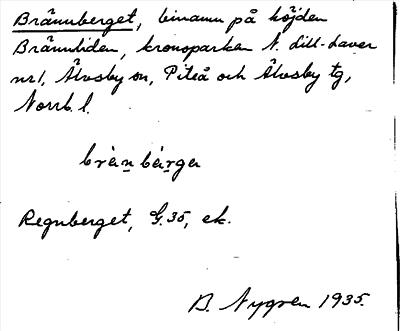 Brännberget, binamn på höjden
Brännliden, kronoparken N. Lill-Laver
nr 1, Älvsby sn, Piteå och Älvsby tg,
Norrb. l.
brànbärga
Regnberget, G.35, ek.
B. Nygren 1935.